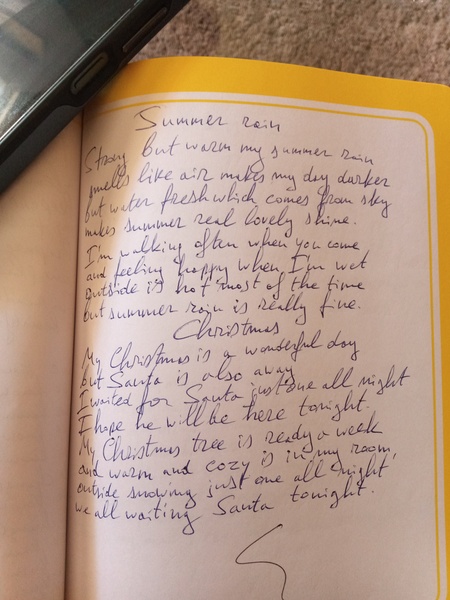 Summer rain
Strong but warm my summer rain
smells like air makes my day darker
but water fresh which comes from sky
makes summer real lovely shine.
I'm walking often when you come
and feeling happy when I'm wet
outside is hot most of the time
but summer rain is really fine.
Christmas
My Christmas is a wonderful day
but Santa is also away
I waited for Santa just one all night
I hope he will be here tonight.
My Christmas tree is ready a week
and warm and cozy is in my room,
outside snowing just one all night
we all waiting Santa tonight.